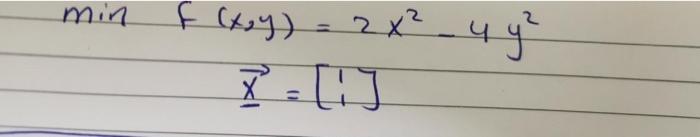 min f (x,y) = 2x² - 4y²
x⃗ = [1 1]